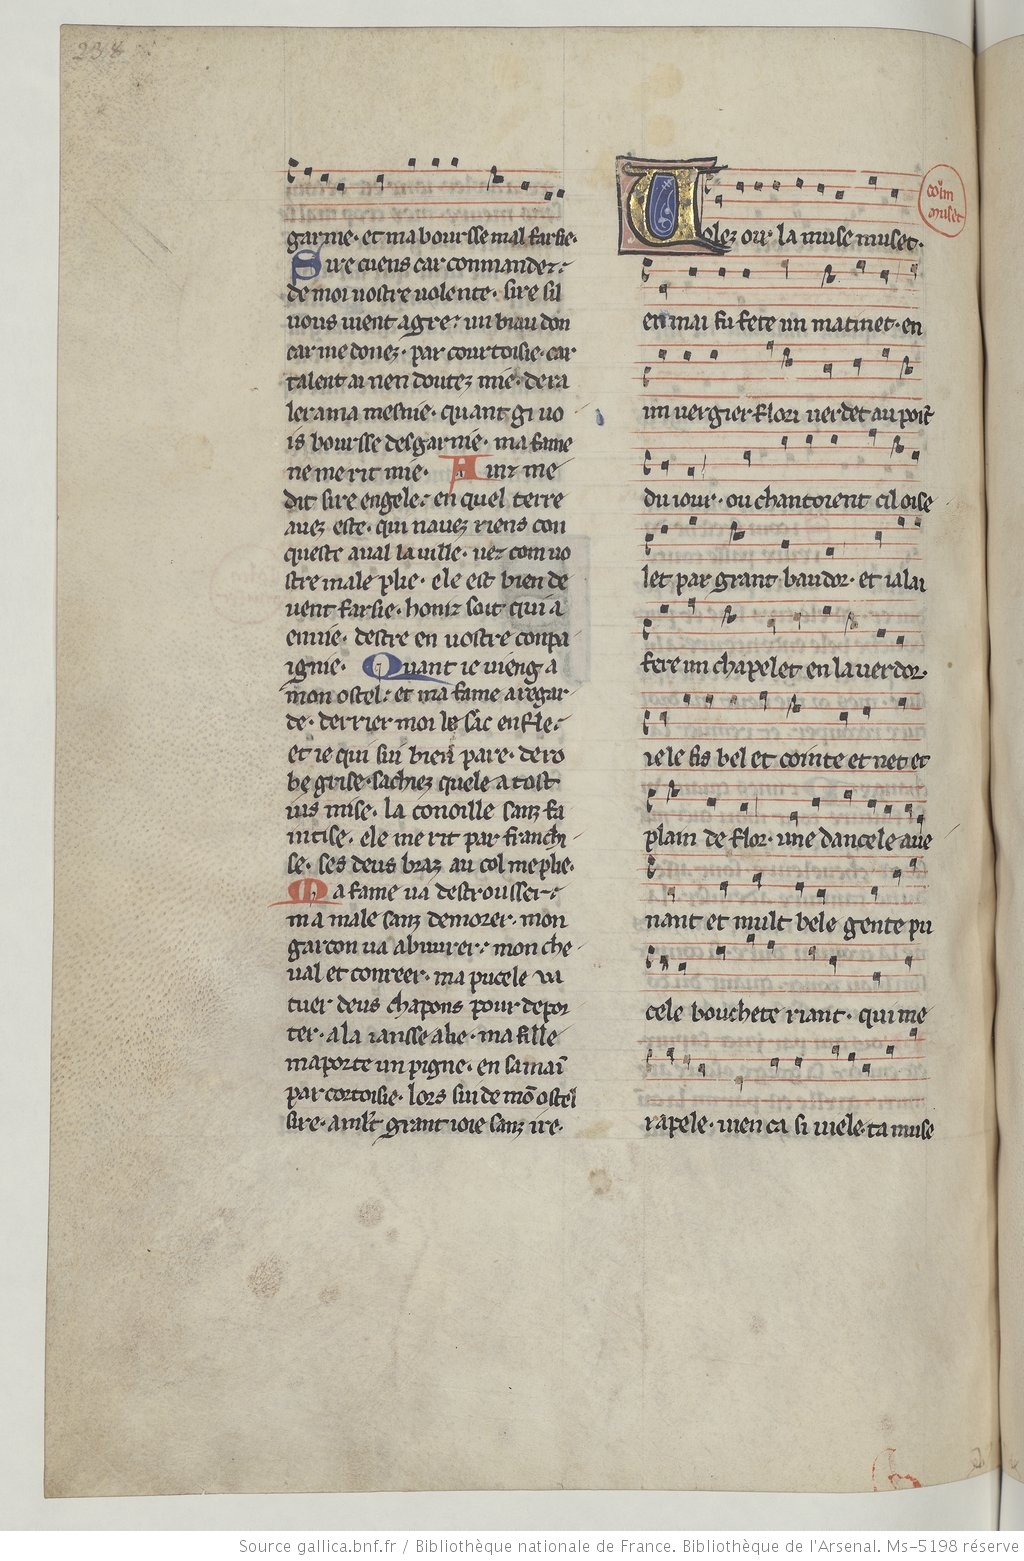 238
garnie. et ma boursse mal farsie.
Sire cuens car conmandez.
de moi vostre volente. sire sil
vous vient a gre. un biau don
car me donez. par courtoisie. car
talent ai nen doutez mie. de ra
ler a ma mesnie. quant gi vo
is boursse desgarnie. ma fame
ne me rit mie. Ainz me
dit sire engele. en quel terre
avez este. qui navez riens con
queste aval la ville. vez com vo
stre male plie. ele est bien de
vent farsie. honiz soit qui a
envie. destre en vostre conpa
ignie. Quant ie vieng a
mon ostel. et ma fame a regar
de. derrier moi le sac enfle.
et ie qui sui bien pare. de ro
be grise. sachiez quele a tost
ius mise. la conoille sanz fa
intise. ele me rit par franchi
se. ses deus braz au col me plie.
Ma fame va destrousser.
ma male sanz demorer. mon
garcon va abuvrer. mon che
val et conreer. ma pucele va
tuer deus chapons pour depor
ter. a la iansse alie. ma fille
maporte un pigne. en sa mai
par cortoisie. lors sui de mo ostel
sire. a mlt grant ioie sanz ire.
Volez oir la muse muset.
colin
muset
en mai fu fete un matinet. en
un vergier flori verdet au point
du iour. ou chantoient cil oise
let par grant baudor. et ialai
fere un chapelet en la verdor.
ie le fis bel et cointe et net et
plain de flor. une dancele ave
nant et mult bele gente pu
cele bouchete riant. qui me
rapele. vien ca si viele. ta muse
Source gallica.bnf.fr / Bibliothèque nationale de France. Bibliothèque de l'Arsenal. Ms-5198 réserve